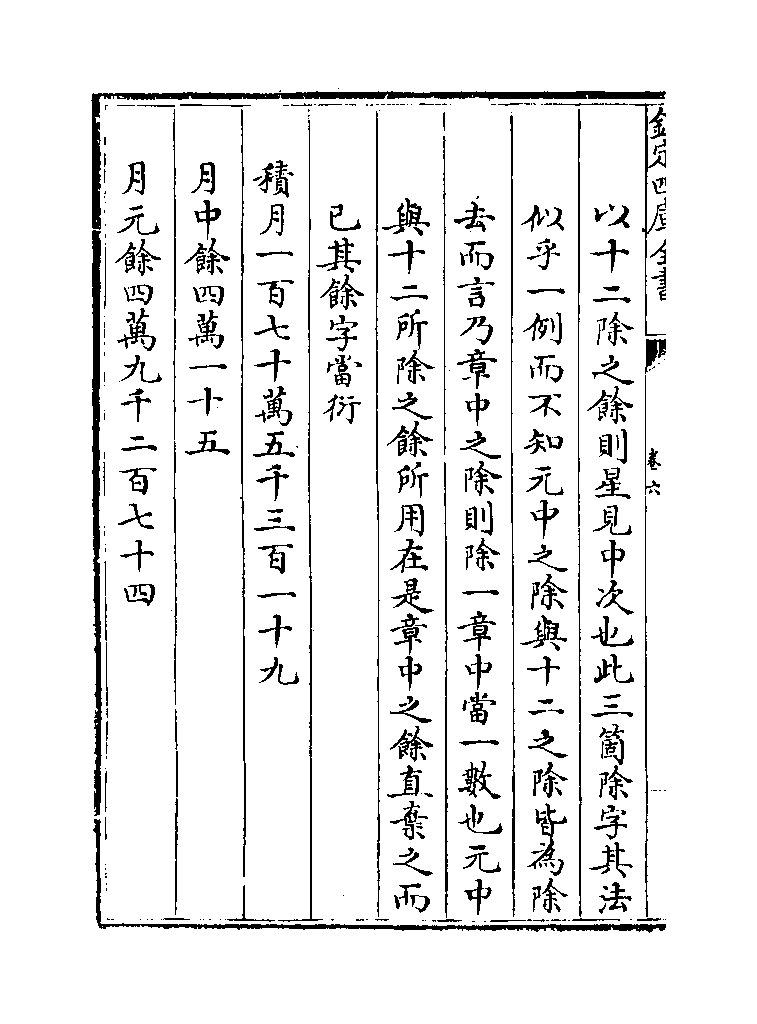 欽定四庫全書
卷六
以十二除之餘則星見中次也此三箇除字其法
似乎一例而不知元中之除與十二之除皆為除
去而言乃章中之除則除一章中當一數也元中
與十二所除之餘所用在是章中之餘直棄之而
已其餘字當衍
積月一百七十萬五千三百一十九
月中餘四萬一十五
月元餘四萬九千二百七十四